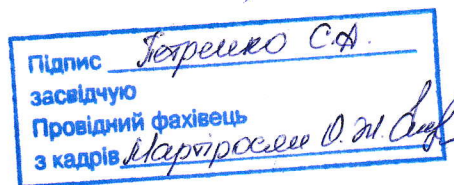 Підпис Петренко С.А.
засвідчую
Провідний фахівець
з кадрів Мартіросян О.Ж.